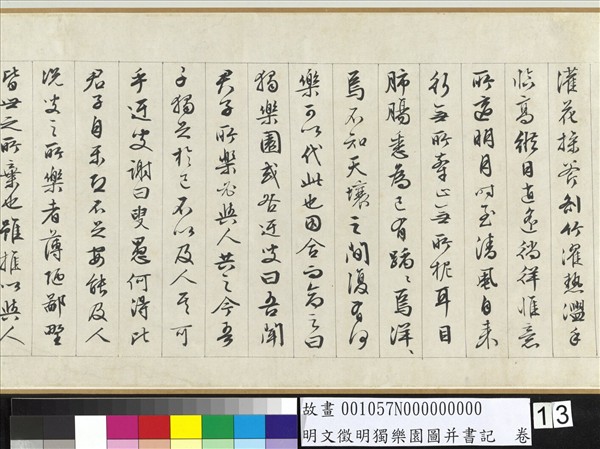 灌花操斧剖竹濯熱盥手
臨高縱目逍遙徜徉惟意
所適明月時至清風自來
行無所牽止無所柅耳目
肺腸悉為己有踽〻焉洋〻
焉不知天壤之間復有何
樂可以代此也因合而命之曰
獨樂園或咎迂叟曰吾聞
君子所樂必與人共之今吾
子獨足於己不以及人其可
乎迂叟謝曰叟愚何得比
君子自樂恐不足安能及人
況叟之所樂者薄陋鄙野
皆世之所棄也雖推以與人
故畫 001057N000000000
明文徵明獨樂園圖并書記 卷
13